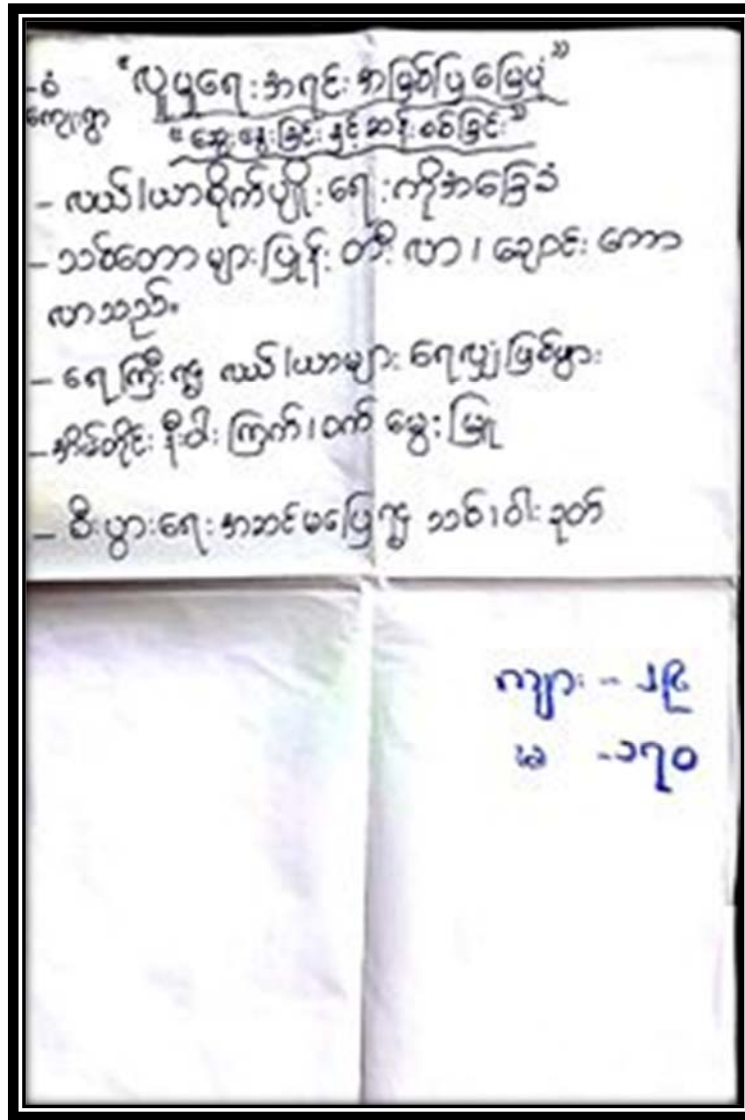 -စံ "လူမှုရေးအရင်းအမြစ်ပြမြေပုံ"
ကျေးရွာ "ဆွေးနွေးခြင်းနှင့်ဆန်းစစ်ခြင်း"
- လယ်/ယာစိုက်ပျိုးရေးကိုအခြေခံ
- သစ်တောများပြုန်းတီးလာ၊ ချောင်းကော
လာသည်။
- ရေကြီး၍ လယ်/ယာများ ရေလျှံဖြစ်ပွား
- အိမ်တိုင်းနီးပါး ကြက်၊ ဝက် မွေးမြူ
- စီးပွားရေးအဆင်မပြေ၍ သစ်၊ ဝါးခုတ်
ကျား - ၂၉
မ - ၁၇၀